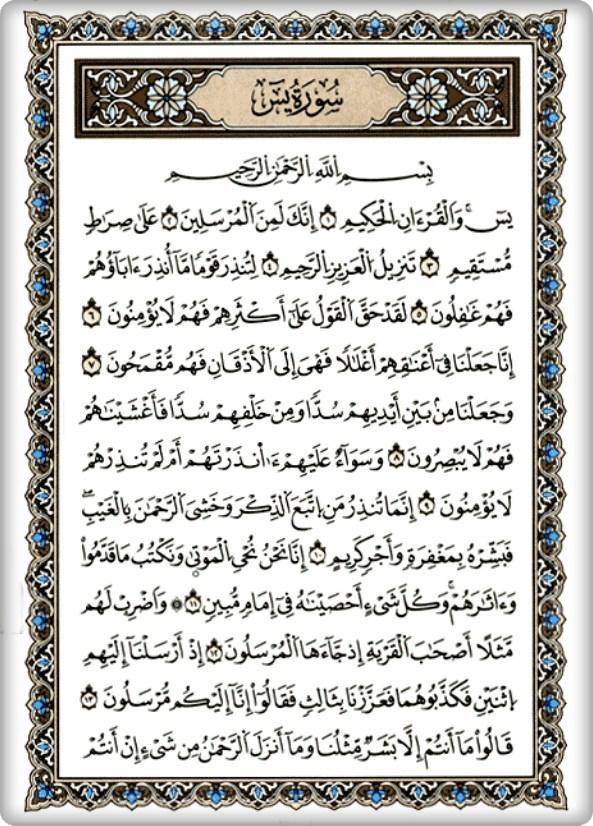 سُورَةُ يسٓ
بِسْمِ اللَّهِ الرَّحْمَٰنِ الرَّحِيمِ
يسٓۚ وَالْقُرْءَانِ الْحَكِيمِ ١ إِنَّكَ لَمِنَ الْمُرْسَلِينَ ٢ عَلَىٰ صِرَاطٍ
مُّسْتَقِيمٍ ٣ تَنزِيلُ الْعَزِيزِ الرَّحِيمِ ٤ لِتُنذِرَ قَوْمًا مَّا أُنذِرَ ءَابَآؤُهُمْ
فَهُمْ غَٰفِلُونَ ٥ لَقَدْ حَقَّ الْقَوْلُ عَلَىٰٓ أَكْثَرِهِمْ فَهُمْ لَا يُؤْمِنُونَ ٦
إِنَّا جَعَلْنَا فِىٓ أَعْنَٰقِهِمْ أَغْلَٰلًا فَهْىَ إِلَى الْأَذْقَانِ فَهُم مُّقْمَحُونَ ٧
وَجَعَلْنَا مِنۢ بَيْنِ أَيْدِيهِمْ سُدًّا وَمِنْ خَلْفِهِمْ سُدًّا فَأَغْشَيْنَٰهُمْ
فَهُمْ لَا يُبْصِرُونَ ٨ وَسَوَآءٌ عَلَيْهِمْ ءَاَنذَرْتَهُمْ أَمْ لَمْ تُنذِرْهُمْ
لَا يُؤْمِنُونَ ٩ إِنَّمَا تُنذِرُ مَنِ اتَّبَعَ الذِّكْرَ وَخَشِىَ الرَّحْمَٰنَ بِالْغَيْبِۖ
فَبَشِّرْهُ بِمَغْفِرَةٍ وَأَجْرٍ كَرِيمٍ ١٠ إِنَّا نَحْنُ نُحْىِ الْمَوْتَىٰ وَنَكْتُبُ مَا قَدَّمُواْ
وَءَاثَٰرَهُمْۚ وَكُلَّ شَىْءٍ أَحْصَيْنَٰهُ فِىٓ إِمَامٍ مُّبِينٍ ١١ ۞ وَاضْرِبْ لَهُم
مَّثَلًا أَصْحَٰبَ الْقَرْيَةِ إِذْ جَآءَهَا الْمُرْسَلُونَ ١٢ إِذْ أَرْسَلْنَآ إِلَيْهِمُ
اثْنَيْنِ فَكَذَّبُوهُمَا فَعَزَّزْنَا بِثَالِثٍ فَقَالُوٓاْ إِنَّآ إِلَيْكُم مُّرْسَلُونَ ١٣
قَالُواْ مَآ أَنتُمْ إِلَّا بَشَرٌ مِّثْلُنَا وَمَآ أَنزَلَ الرَّحْمَٰنُ مِن شَىْءٍ إِنْ أَنتُمْ